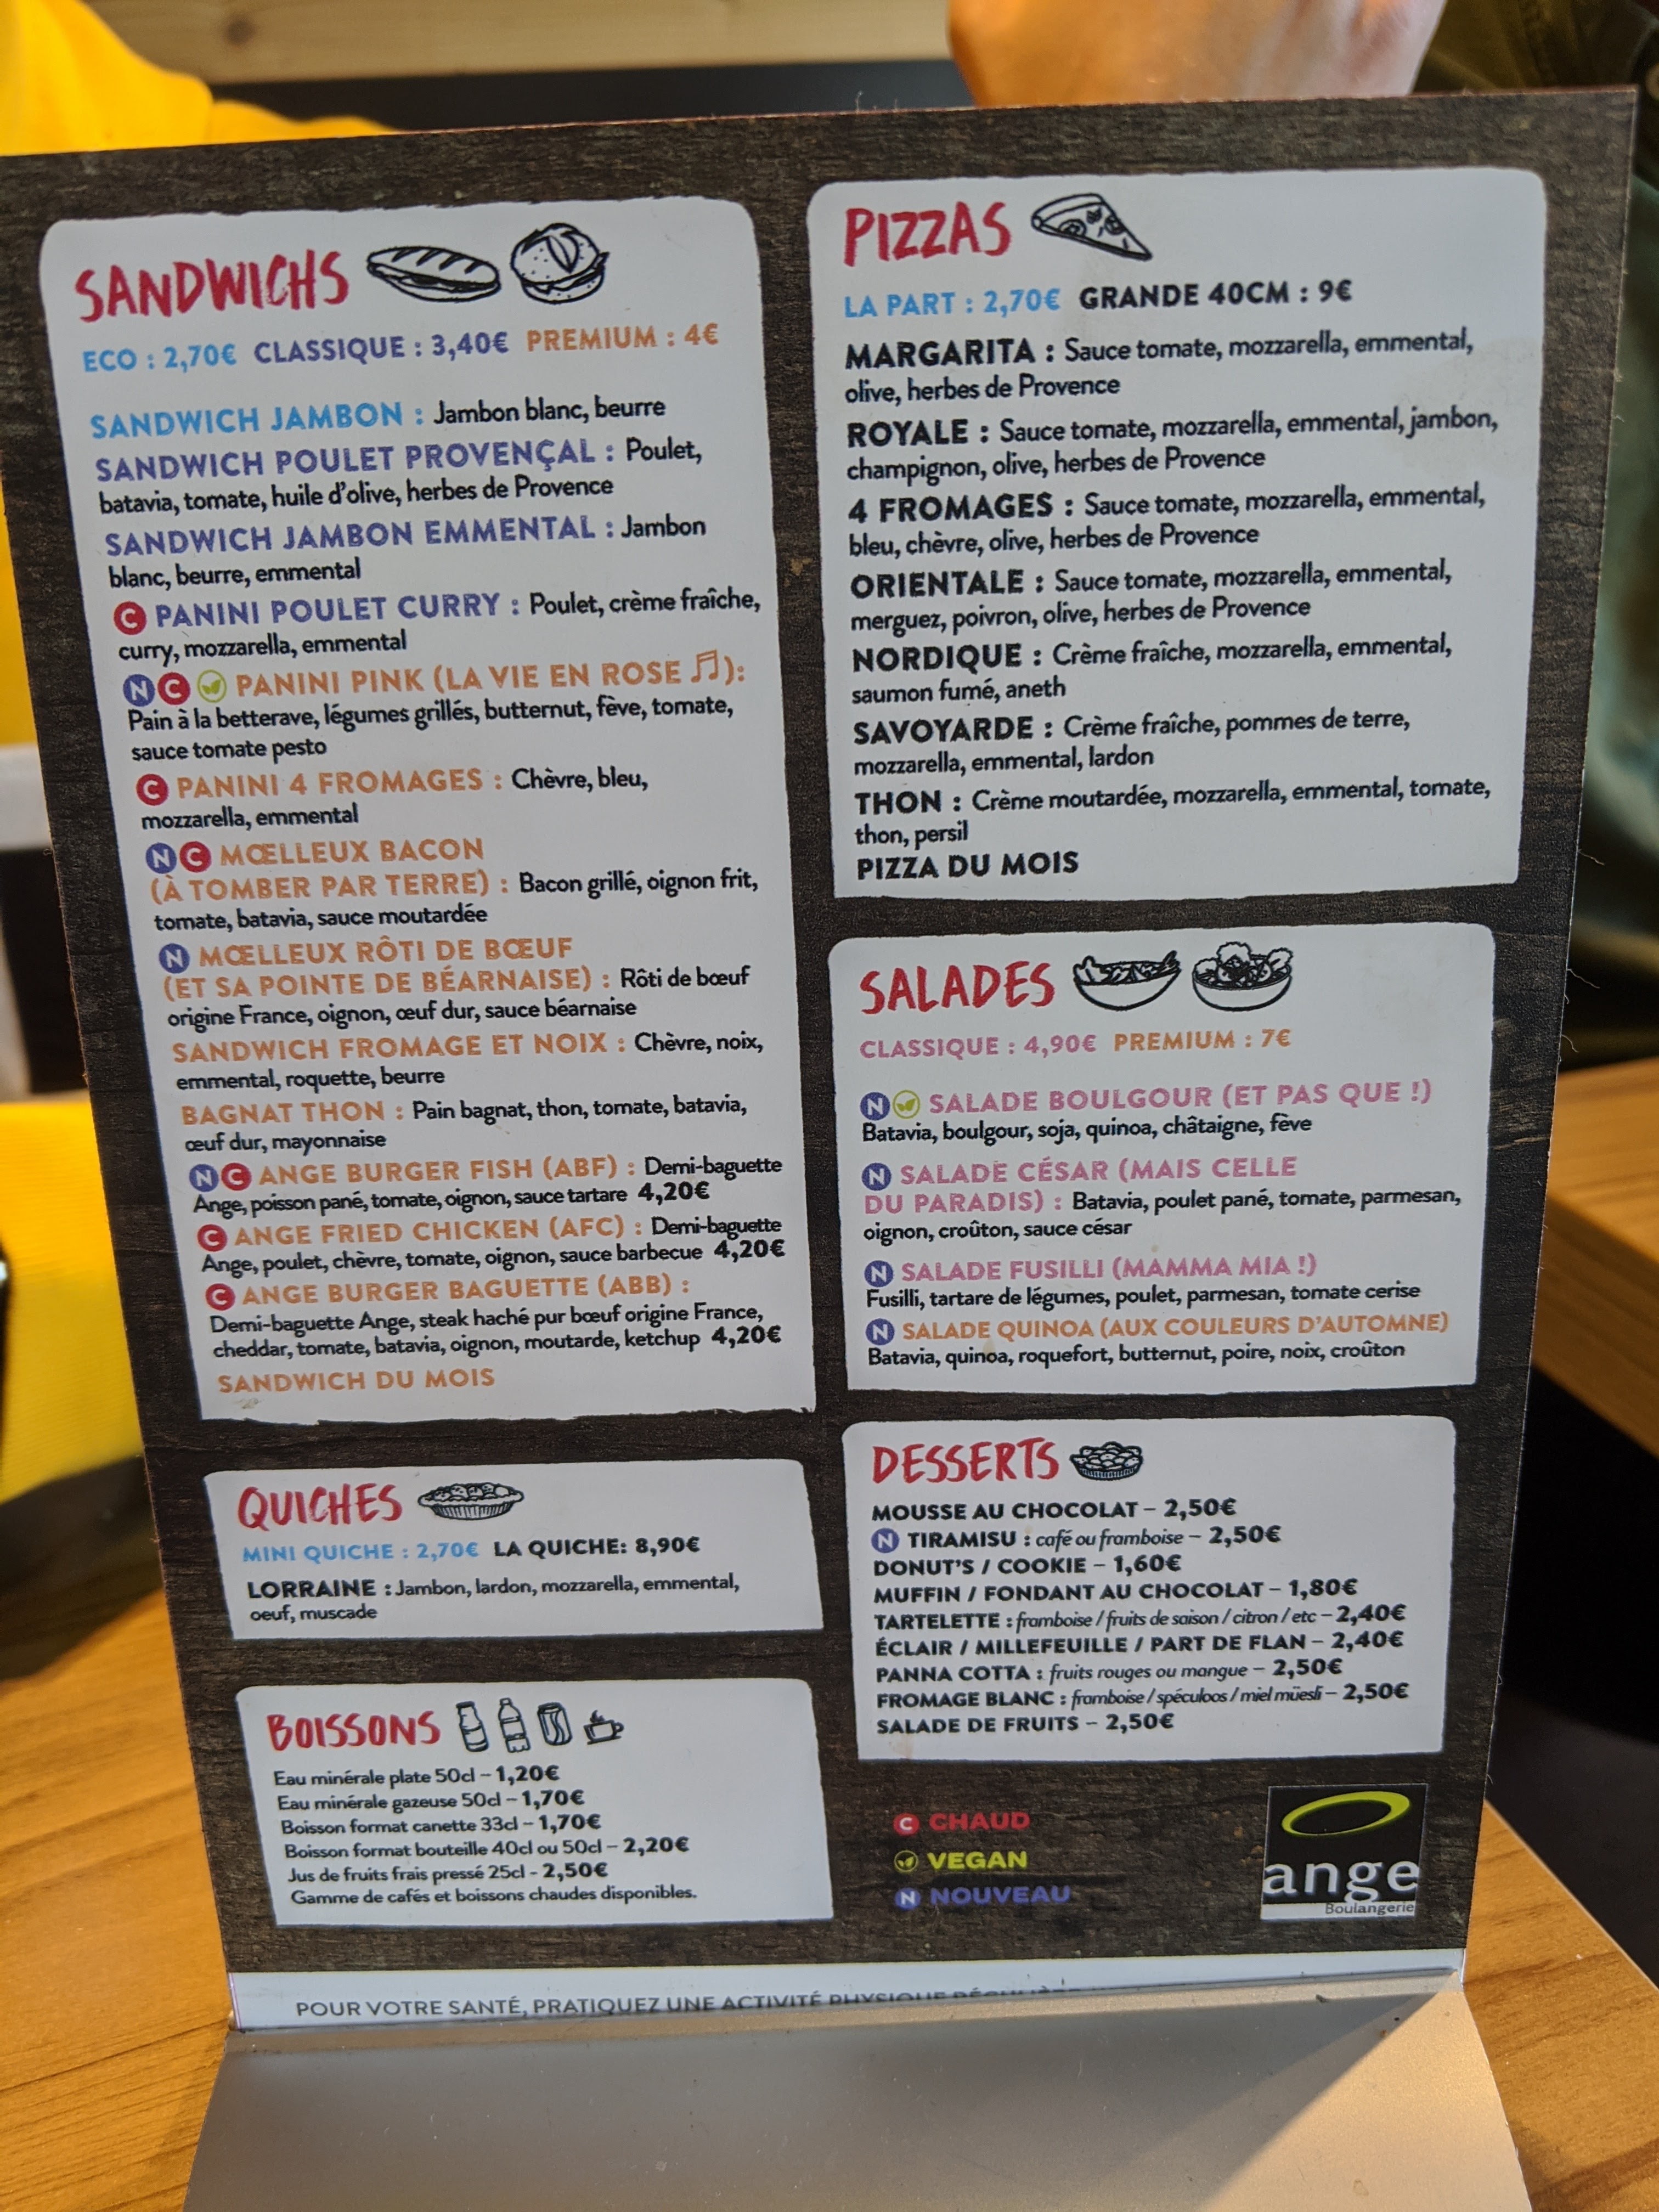 SANDWICHS
ECO : 2,70€ CLASSIQUE : 3,40€ PREMIUM : 4€
SANDWICH JAMBON : Jambon blanc, beurre
SANDWICH POULET PROVENÇAL : Poulet,
batavia, tomate, huile d'olive, herbes de Provence
SANDWICH JAMBON EMMENTAL : Jambon
blanc, beurre, emmental
C PANINI POULET CURRY : Poulet, crème fraîche,
curry, mozzarella, emmental
N C PANINI PINK (LA VIE EN ROSE ♫):
Pain à la betterave, légumes grillés, butternut, fève, tomate,
sauce tomate pesto
C PANINI 4 FROMAGES : Chèvre, bleu,
mozzarella, emmental
N C MŒLLEUX BACON
(À TOMBER PAR TERRE) : Bacon grillé, oignon frit,
tomate, batavia, sauce moutardée
N MŒLLEUX RÔTI DE BŒUF
(ET SA POINTE DE BÉARNAISE) : Rôti de bœuf
origine France, oignon, œuf dur, sauce béarnaise
SANDWICH FROMAGE ET NOIX : Chèvre, noix,
emmental, roquette, beurre
BAGNAT THON : Pain bagnat, thon, tomate, batavia,
œuf dur, mayonnaise
N C ANGE BURGER FISH (ABF) : Demi-baguette
Ange, poisson pané, tomate, oignon, sauce tartare 4,20€
C ANGE FRIED CHICKEN (AFC) : Demi-baguette
Ange, poulet, chèvre, tomate, oignon, sauce barbecue 4,20€
C ANGE BURGER BAGUETTE (ABB) :
Demi-baguette Ange, steak haché pur bœuf origine France,
cheddar, tomate, batavia, oignon, moutarde, ketchup 4,20€
SANDWICH DU MOIS
QUICHES
MINI QUICHE : 2,70€ LA QUICHE: 8,90€
LORRAINE : Jambon, lardon, mozzarella, emmental,
oeuf, muscade
BOISSONS
Eau minérale plate 50cl – 1,20€
Eau minérale gazeuse 50cl – 1,70€
Boisson format canette 33cl – 1,70€
Boisson format bouteille 40cl ou 50cl – 2,20€
Jus de fruits frais pressé 25cl - 2,50€
Gamme de cafés et boissons chaudes disponibles.
PIZZAS
LA PART : 2,70€ GRANDE 40CM : 9€
MARGARITA : Sauce tomate, mozzarella, emmental,
olive, herbes de Provence
ROYALE : Sauce tomate, mozzarella, emmental, jambon,
champignon, olive, herbes de Provence
4 FROMAGES : Sauce tomate, mozzarella, emmental,
bleu, chèvre, olive, herbes de Provence
ORIENTALE : Sauce tomate, mozzarella, emmental,
merguez, poivron, olive, herbes de Provence
NORDIQUE : Crème fraîche, mozzarella, emmental,
saumon fumé, aneth
SAVOYARDE : Crème fraîche, pommes de terre,
mozzarella, emmental, lardon
THON : Crème moutardée, mozzarella, emmental, tomate,
thon, persil
PIZZA DU MOIS
SALADES
CLASSIQUE : 4,90€ PREMIUM : 7€
N SALADE BOULGOUR (ET PAS QUE !)
Batavia, boulgour, soja, quinoa, châtaigne, fève
N SALADE CÉSAR (MAIS CELLE
DU PARADIS) : Batavia, poulet pané, tomate, parmesan,
oignon, croûton, sauce césar
N SALADE FUSILLI (MAMMA MIA !)
Fusilli, tartare de légumes, poulet, parmesan, tomate cerise
N SALADE QUINOA (AUX COULEURS D'AUTOMNE)
Batavia, quinoa, roquefort, butternut, poire, noix, croûton
DESSERTS
MOUSSE AU CHOCOLAT – 2,50€
N TIRAMISU : café ou framboise – 2,50€
DONUT'S / COOKIE – 1,60€
MUFFIN / FONDANT AU CHOCOLAT – 1,80€
TARTELETTE : framboise / fruits de saison / citron / etc – 2,40€
ÉCLAIR / MILLEFEUILLE / PART DE FLAN – 2,40€
PANNA COTTA : fruits rouges ou mangue – 2,50€
FROMAGE BLANC : framboise / spéculoos / miel müesli – 2,50€
SALADE DE FRUITS – 2,50€
C CHAUD
VEGAN
N NOUVEAU
ange
Boulangerie
POUR VOTRE SANTÉ, PRATIQUEZ UNE ACTIVITÉ PHYSIQUE